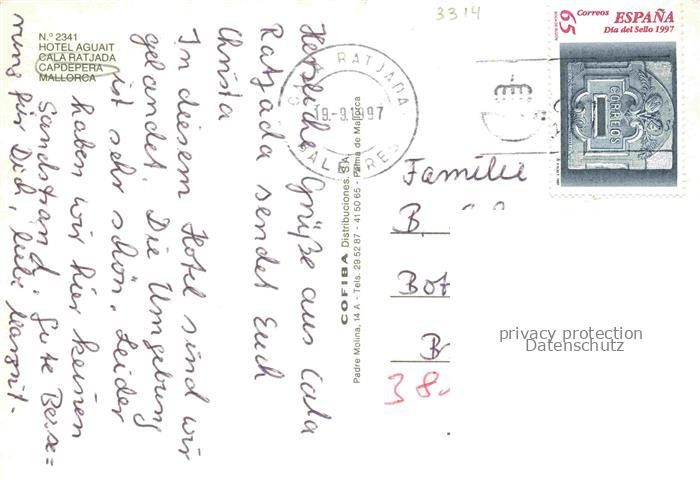 3314
N.º 2341
HOTEL AGUAIT
CALA RATJADA
CAPDEPERA
MALLORCA
Herzliche Grüße aus Cala
Ratjada sendet Euch
Christa
In diesem Hotel sind wir
gelandet. Die Umgebung
ist sehr schön. Leider
haben wir hier keinen
Sandstrand. Gute Besse=
rung für Dich, liebe Margrit.
COFIBA Distribuciones, S.A.
Padre Molina, 14 A - Tels. 29 52 87 - 41 50 65 - Palma de Mallorca
CALA RATJADA
19.-9.1997
BALEARES
65
Correos
ESPAÑA
Día del Sello 1997
CORREOS
Familie
B
Bot
B
38
privacy protection
Datenschutz